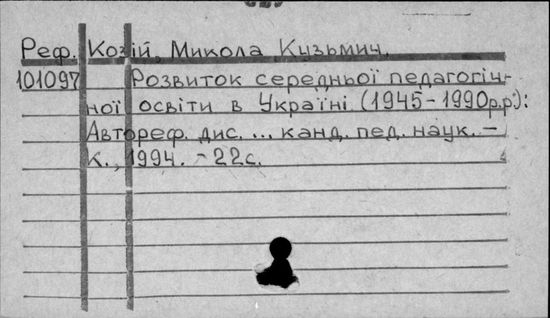 Реф. Козій, Микола Кузьмич.
101097 Розвиток середньої педагогіч-
ної освіти в Україні (1945-1990р.р.):
Автореф. дис. ... канд. пед. наук. -
К., 1994. - 22с.